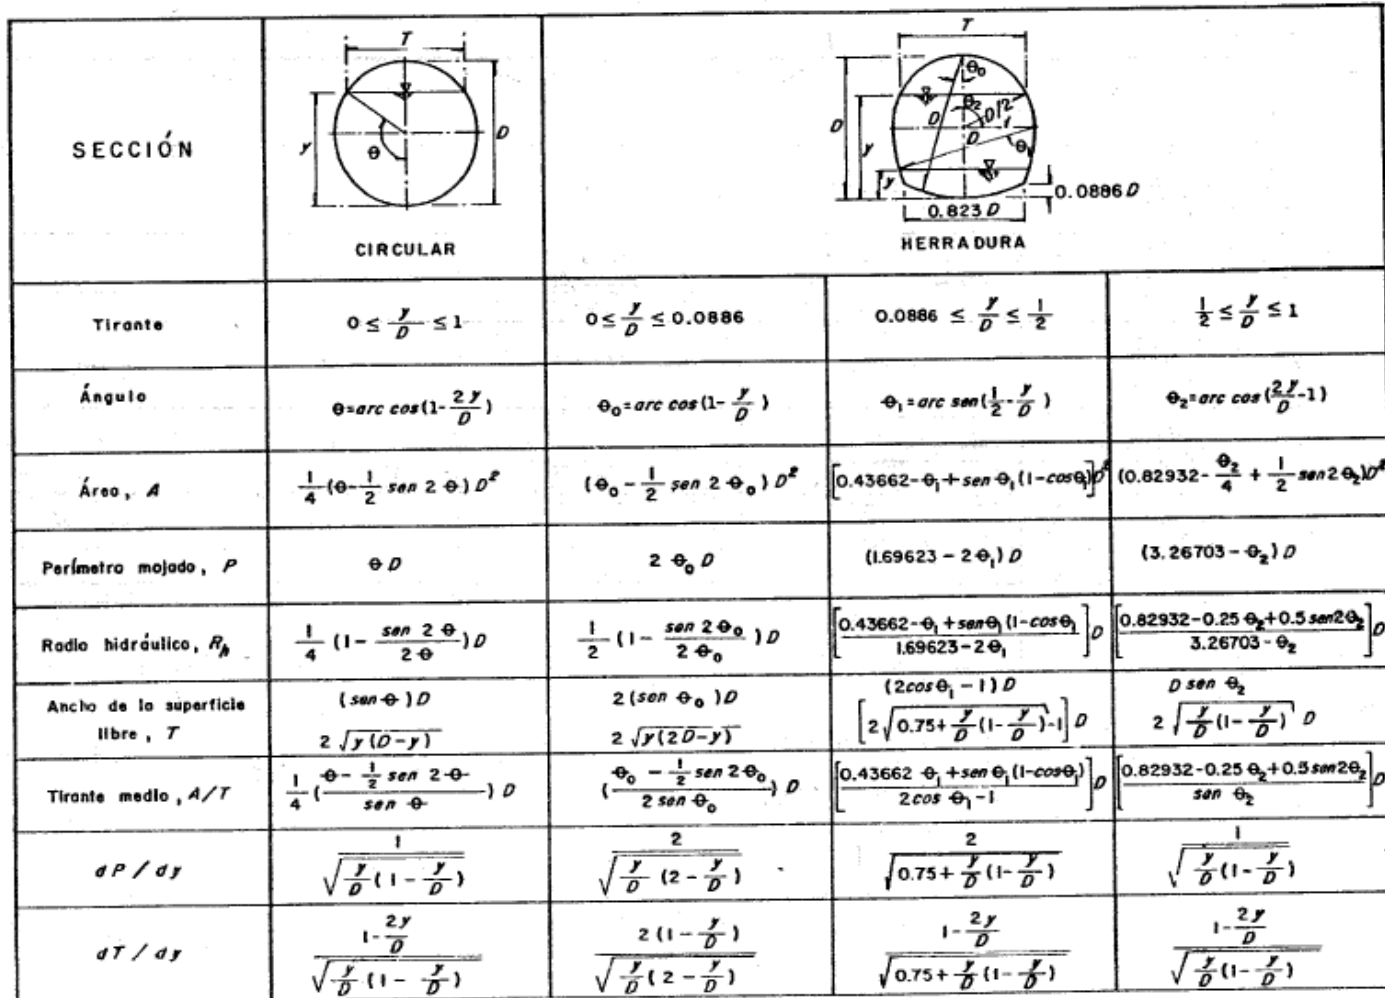 SECCIÓN
T
y
θ
D
CIRCULAR
T
θ₀
θ₂
D
D
D/2
1
y
D
θ₁
y
0.0886 D
0.823 D
HERRADURA
Tirante
0 ≤ y/D ≤ 1
0 ≤ y/D ≤ 0.0886
0.0886 ≤ y/D ≤ 1/2
1/2 ≤ y/D ≤ 1
Ángulo
θ = arc cos (1 - 2y/D)
θ₀ = arc cos (1 - y/D)
θ₁ = arc sen (1/2 - y/D)
θ₂ = arc cos (2y/D - 1)
Área, A
1/4 (θ - 1/2 sen 2 θ) D²
(θ₀ - 1/2 sen 2 θ₀) D²
[0.43662 - θ₁ + sen θ₁ (1 - cosθ₁)] D²
(0.82932 - θ₂/4 + 1/2 sen 2 θ₂) D²
Perímetro mojado, P
θ D
2 θ₀ D
(1.69623 - 2 θ₁) D
(3.26703 - θ₂) D
Radio hidráulico, Rh
1/4 (1 - sen 2 θ / 2 θ) D
1/2 (1 - sen 2 θ₀ / 2 θ₀) D
[0.43662 - θ₁ + senθ₁ (1 - cosθ₁ / 1.69623 - 2 θ₁] D
[0.82932 - 0.25 θ₂ + 0.5 sen2θ₂ / 3.26703 - θ₂] D
Ancho de la superficie
libre, T
(sen θ) D
2 √y(D-y)
2 (sen θ₀) D
2 √y(2D-y)
(2cosθ₁ - 1) D
[2 √0.75 + y/D (1 - y/D) -1] D
D sen θ₂
2 √y/D (1 - y/D) D
Tirante medio, A/T
1/4 (θ - 1/2 sen 2 θ / sen θ) D
(θ₀ - 1/2 sen 2θ₀ / 2 sen θ₀) D
[0.43662 θ₁ + sen θ₁ (1-cosθ₁) / 2cos θ₁ - 1] D
[0.82932 - 0.25 θ₂ + 0.5 sen2θ₂ / sen θ₂] D
dP / dy
1 / √y/D (1 - y/D)
2 / √y/D (2 - y/D)
2 / √0.75 + y/D (1 - y/D)
1 / √y/D (1 - y/D)
dT / dy
1 - 2y/D / √y/D (1 - y/D)
2 (1 - y/D) / √y/D (2 - y/D)
1 - 2y/D / √0.75 + y/D (1 - y/D)
1 - 2y/D / √y/D (1 - y/D)